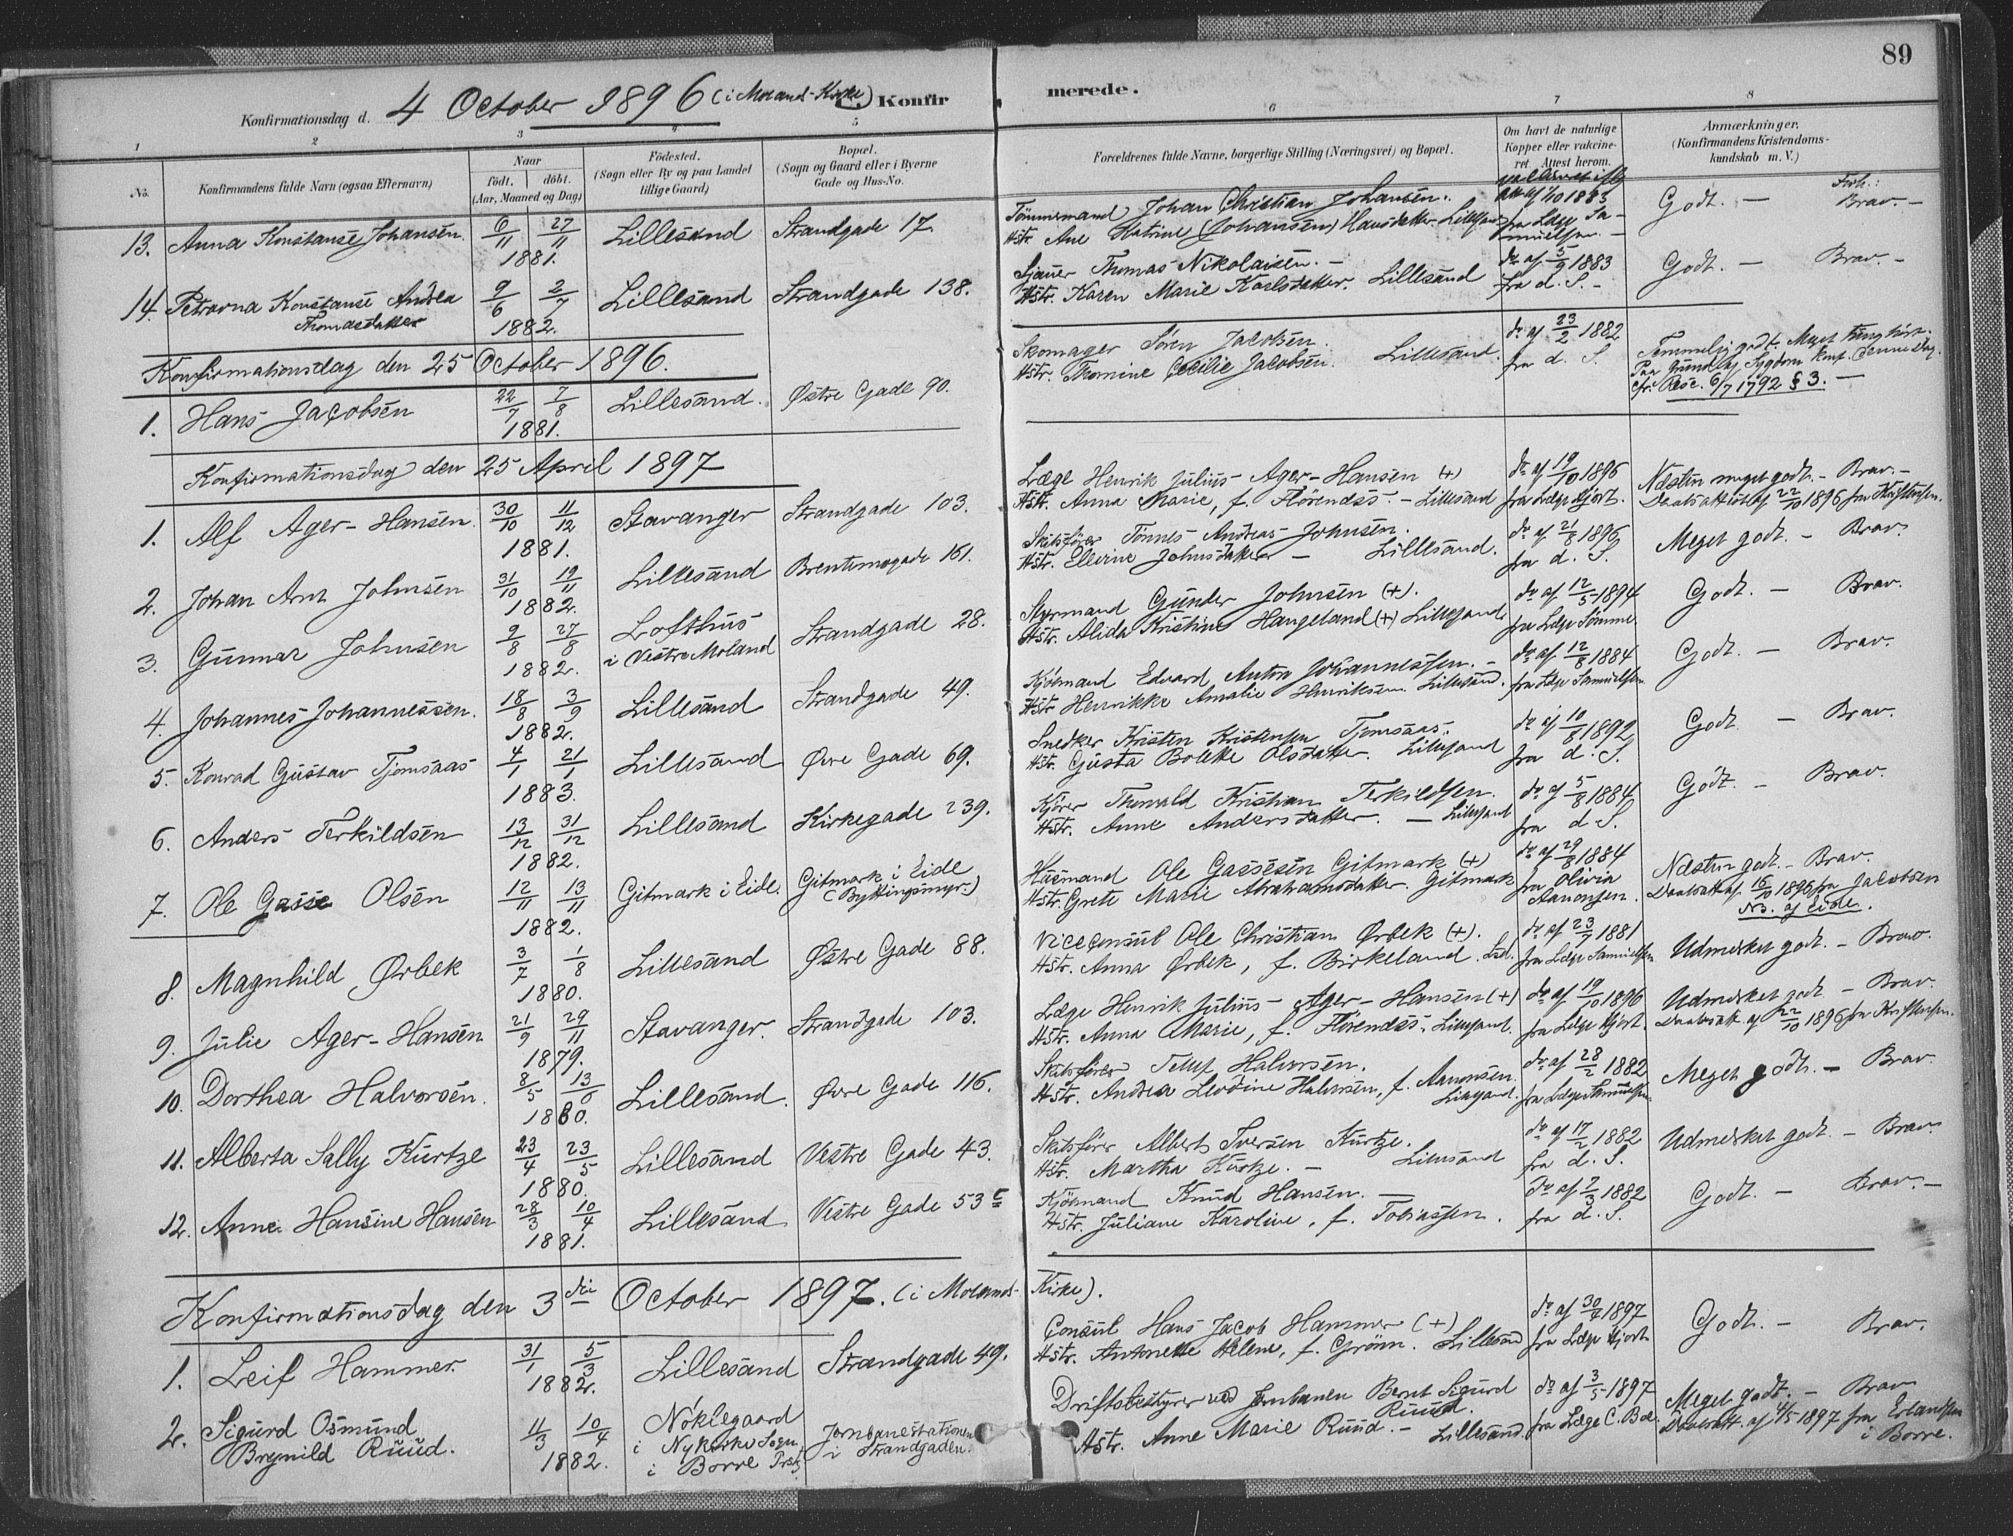 89
Konfirmationsdag d. 4 October 1896 (i Moland Kirke) C. Konfirmerede.
1 2 3 4 5 6 7 8
No.
Konfirmandens fulde Navn (ogsaa Efternavn)
Naar
født. døbt.
(Aar, Maaned og Dag)
Fødested.
(Sogn eller By og paa Landet
tillige Gaard)
Bopæl.
(Sogn og Gaard eller i Byerne
Gade og Hus-No.
Forældrenes fulde Navne, borgerlige Stilling (Næringsvei) og Bopæl.
Om havt de naturlige
Kopper eller vakcine-
ret. Attest herom.
Anmærkninger.
(Konfirmandens Kristendoms-
kundskab m. V.)
13. Anna Konstanse Johansen. 6/11 27/11 1881. Lillesand Strandgade 17.
Tømmermand Johan Christian Johansen.
Hstr. Ane Katrine (Johansen) Hansdatter. Lillesand
1883 fra Læge Samuelsen. Godt. — Forh.: Brav. —
14. Petrovna Konstanse Andrea Thomasdatter 9/6 2/7 1882. Lillesand Strandgade 138.
Sjauer Thomas Nikolaisen. —
Hstr. Karen Marie Karlsdatter. Lillesand
do af 5/9 1883 fra d. S. — Godt. — Brav. —
Konfirmationsdag den 25 October 1896.
1. Hans Jacobsen 22/7 7/8 1881. Lillesand. Østre Gade 90.
Skomager Søren Jacobsen.
Hstr. Thomine Cecilie Jacobsen. Lillesand.
do af 23/2 1882 fra d. S. Temmelig godt. Meget tunghørt.
Paa Grund af Sygdom konf. denne Dag.
cfr. Resc. 6/7 1792 § 3. —
Konfirmationsdag den 25 April 1897
1. Alf Ager-Hansen 30/10 11/12 1881. Stavanger Strandgade 103.
Læge Henrik Julius Ager-Hansen (+)
Hstr. Anna Marie, f. Flørenæss. — Lillesand
do af 19/10 1896 fra Læge Hjort. Næsten meget godt. — Brav. —
Daabsattest af 22/10 1896 fra Kristensen.
2. Johan Arnt Johnsen 31/10 19/11 1882. Lillesand Brentemogade 161.
Skibsfører Tønnes Andreas Johnsen.
Hstr. Elevine Johnsdatter — Lillesand.
do af 21/8 1896 fra d. S. Meget godt. — Brav.
3. Gunnar Johnsen 9/8 27/8 1882. Lofthus i Vestre Moland Strandgade 28.
Styrmand Gunder Johnsen (+).
Hstr. Alida Kristine Haugeland (+) Lillesand
do af 12/5 1894 fra Læge Tømme. Godt. — Brav.
4. Johannes Johannessen. 18/8 3/9 1882. Lillesand Strandgade 49.
Kjøbmand Edvard Anton Johannessen. —
Hstr. Henrikke Amalie Henriksen. Lillesand.
do af 12/8 1884 fra Læge Samuelsen Godt. — Brav.
5. Konrad Gustav Tjomsaas 4/1 21/1 1883. Lillesand Øvre Gade 69.
Snedker Kristen Kristensen Tjomsaas.
Hstr. Gusta Bolette Olsdatter. Lillesand
do af 10/8 1892 fra d. S. Godt — Brav.
6. Anders Terkildsen 13/12 31/12 1882. Lillesand Kirkegade 239.
Kjører Thorvald Kristian Terkildsen.
Hstr. Anne Andersdatter. — Lillesand
do af 5/8 1884 fra d. S. Godt. — Brav.
7. Ole Gasse Olsen 12/11 13/11 1882. Gitmark i Eide. Gitmark i Eide (Byttingsmyr.)
Husmand Ole Gassesen Gitmark (+)
Hstr. Grete Marie Abrahamsdatter. Gitmark
do af 29/8 1884 fra Olivia Aanonsen. Næsten godt. — Brav.
Daabsatt. af 16/10 1896 fra Jacobsen
NB. af Eide.
8. Magnhild Ørbek 3/7 1/8 1880. Lillesand Østre Gade 88.
Viceconsul Ole Christian Ørbek (+).
Hstr. Anna Ørbek, f. Birkeland. Lsd.
do af 23/7 1881 fra Læge Samuelsen Udmerket godt. — Brav.
9. Julie Ager-Hansen 21/9 29/11 1879. Stavanger. Strandgade 103.
Læge Henrik Julius Ager-Hansen (+)
Hstr. Anna Marie, f. Flørenæss. Lillesand.
do af 19/10 1896 fra Læge Hjort. Udmerket godt — Brav.
Daabsatt. af 22/10 1896 fra Kristensen.
10. Dorthea Halvorsen. 8/5 13/6 1880. Lillesand. Øvre Gade 116.
Skibsfører Tellef Halvorsen.
Hstr. Andrea Levdine Halvorsen, f. Aanonsen. Lillesand.
do af 28/2 1882 fra Læge Samuelsen Meget godt. — Brav.
11. Alberta Sally Kurtze 23/4 23/5 1880. Lillesand Vestre Gade 43.
Skibsfører Albert Iversen Kurtze.
Hstr. Martha Kurtze. — Lillesand
do af 17/2 1882 fra d. S. Udmerket godt. — Brav.
12. Anne Hansine Hansen 28/3 10/4 1881. Lillesand Vestre Gade 53 c
Kjøbmand Knud Hansen. —
Hstr. Juliane Karoline, f. Tobiassen.
do af 2/3 1882 fra d. S. Godt. — Brav. —
Konfirmationsdag den 3die October 1897. (i Molands Kirke).
1. Leif Hammer. 31/1 5/3 1882. Lillesand Strandgade 49.
Consul Hans Jacob Hammer (+)
Hstr. Antonette Helene, f. Grönn. Lillesand
do af 30/9 1897 fra Læge Hjort Godt. — Brav.
2. Sigurd Osmund Brynild Ruud. 11/3 10/4 1882. Noklegaard i Nykirke Sogn i Borre Prstg. Jernbanestationen i Strandgaden.
Driftsbestyrer ved Jernbanen Bernt Sigurd Ruud.
Hstr. Anne Marie Ruud. — Lillesand.
do af 3/5 1897 fra Læge C. Boe. Meget godt. — Brav
Daabsatt. af 4/5 1897 fra Erlandsen
i Borre.